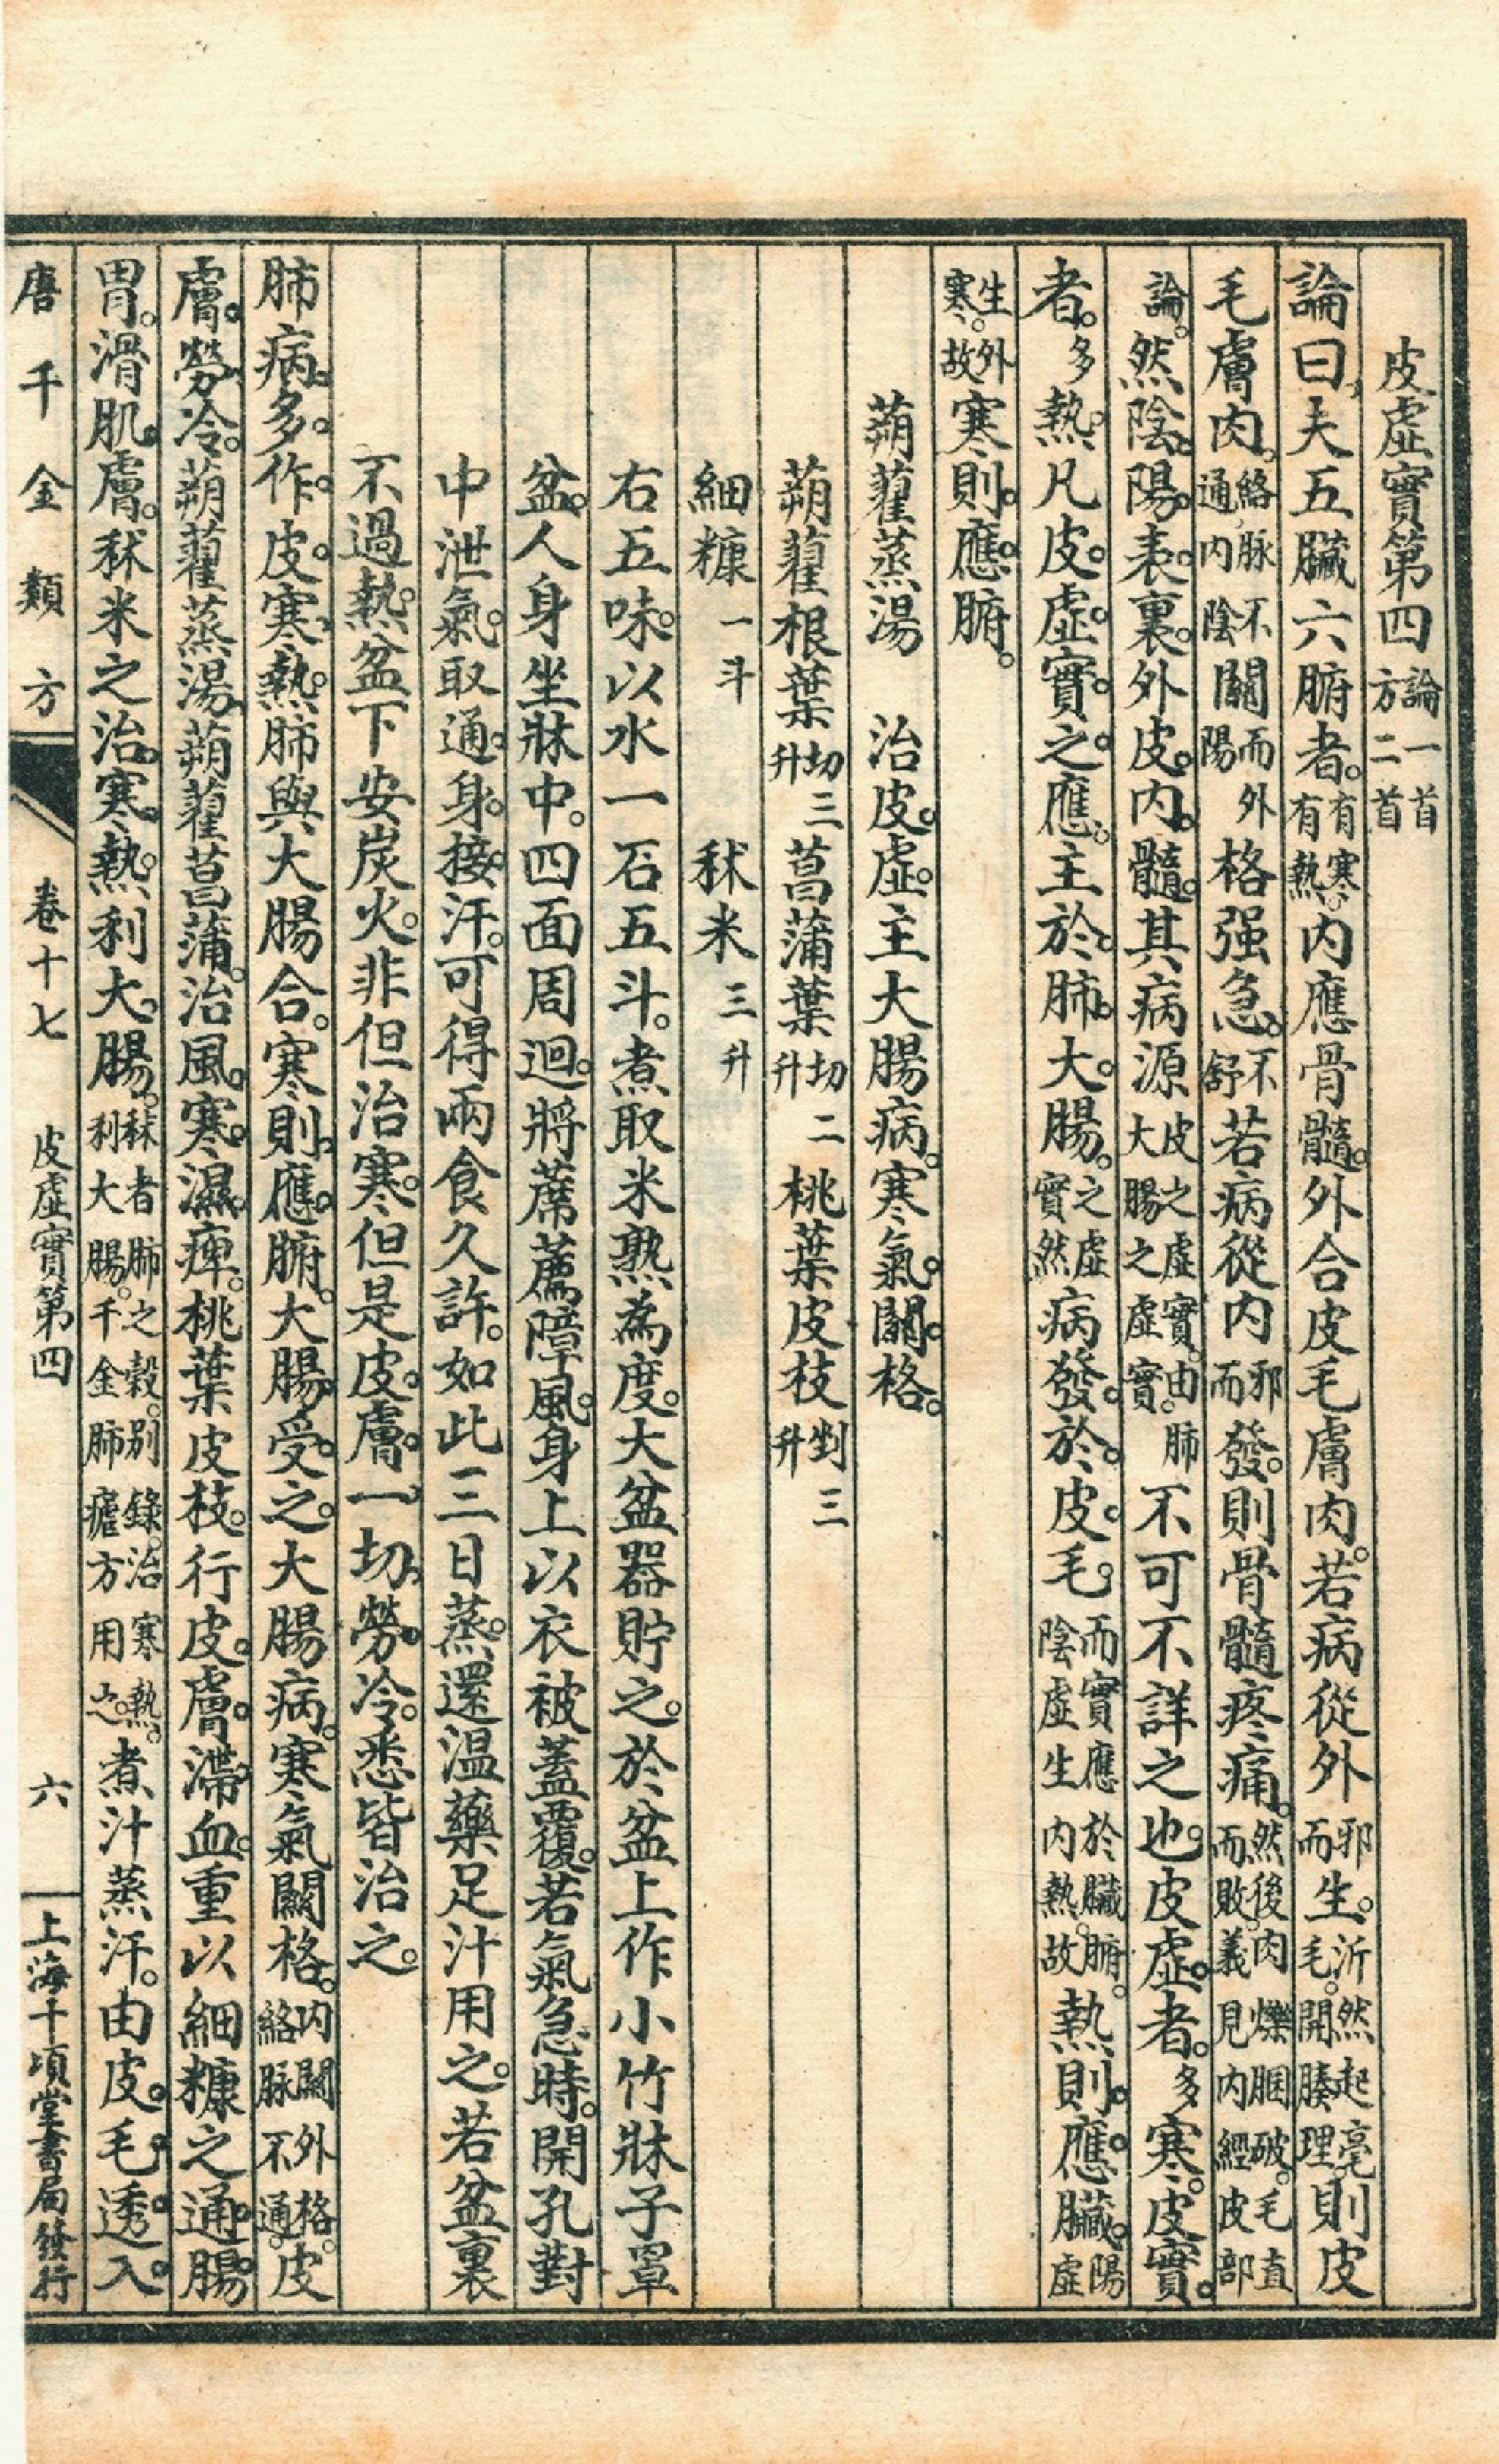 皮虛實第四論一首方二首
論曰夫五臟六腑者。有寒有熱。內應骨髓。外合皮毛膚肉。若病從外邪而生。沂然起毫毛。開腠理。則皮
毛膚肉。絡脉不通、內關而外陰陽格强急。不舒若病從內邪而發。則骨髓疼痛。然後肉爍䐃破。毛直而敗、義見內經皮部
論。然陰。陽。表。裏。外皮。內。髓。其病源皮之虛實。由肺大腸之虛實。不可不詳之也。皮虛。者。多寒。皮實。
者。多熱。凡皮。虛。實。之。應。主於。肺。大。腸。之虛實然病發。於。皮。毛。而實應於臟腑。陰虛生內熱。故熱則。應。臟。陽虛
生外寒。故寒則。應。腑。
蒴藋蒸湯　治皮。虛。主大腸病。寒氣。關。格。
蒴藋根葉切三升　菖蒲葉切二升　桃葉皮枝剉三升
細糠一斗　秫米三升
右五味。以水一石五斗。煮取米熟為度。大盆器貯之。於盆上作小竹牀子罩
盆。人身坐牀中。四面周迴。將蓆薦障風。身上以衣被蓋覆。若氣急時。開孔對
中泄氣。取通。身。接。汗。可得兩食久許。如此三日蒸。還溫藥足汁用之。若盆裏
不過熱。盆下安炭火。非但治寒。但是皮。膚。一切勞。冷。悉皆治之。
肺病。多。作。皮。寒、熱。肺與大腸合。寒則、應。腑。大腸。受。之。大腸病。寒氣關格。內關外格。絡脉不通。皮
膚。勞、冷。蒴藋蒸湯、蒴藋菖蒲。治風。寒。濕。痺。桃葉皮枝。行皮。膚。滯。血。重以細糠之通。腸。
胃。滑肌。膚。秫米之治。寒。熱。利大。腸。秫者肺之穀。別錄。治寒熱。利大腸。千金肺瘧方用之。煮汁蒸汗。由皮。毛。透。入。
唐千金類方　卷十七　皮虛實第四　六　上海千頃堂書局發行